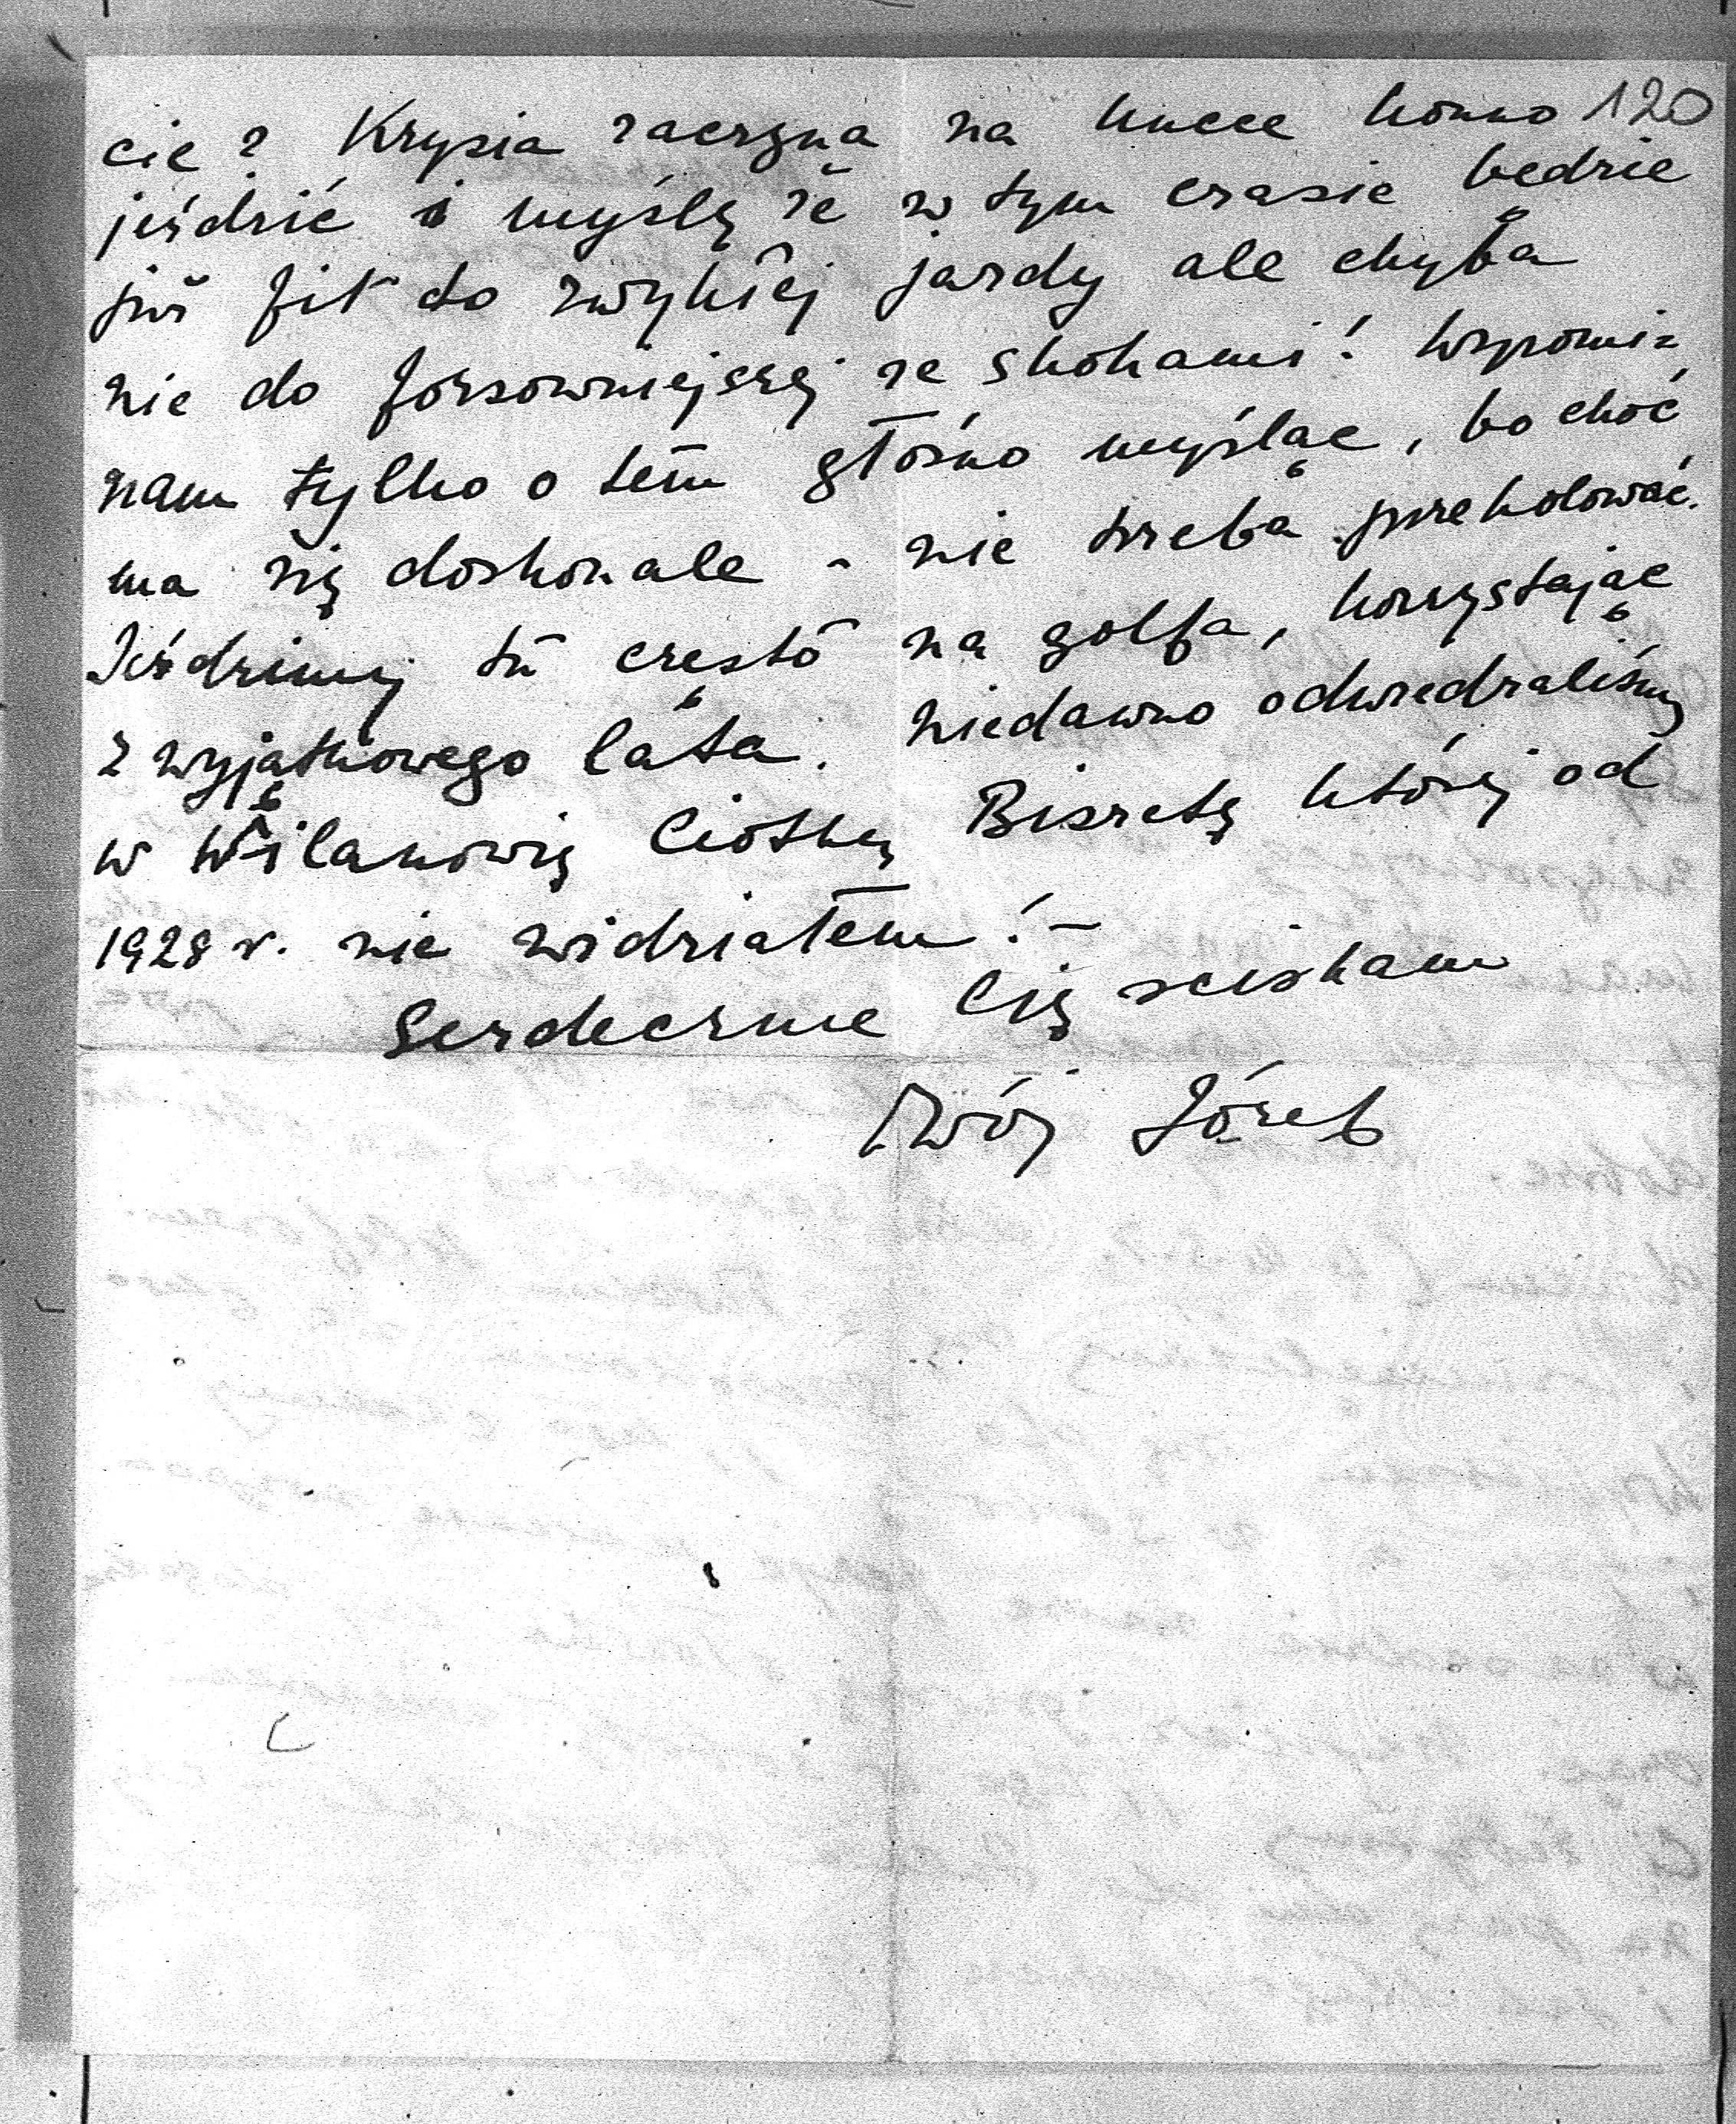 120
cie? Krysia zaczyna na kucce konno
jeździć i myślę że w tym czasie będzie
już fit do zwykłej jazdy ale chyba
nie do forsowniejszej ze skokami! Wspomi=
nam tylko o tem głośno myśląc, bo choć
ma się doskonale - nie trzeba przeholować.
Jeździmy tu często na golfa, korzystając
z wyjątkowego lata. Niedawno odwiedzaliśmy
w Wilanowie Ciotkę Biszetę której od
1928 r. nie widziałem! -
Serdecznie Cię ściskam
Twój Józef